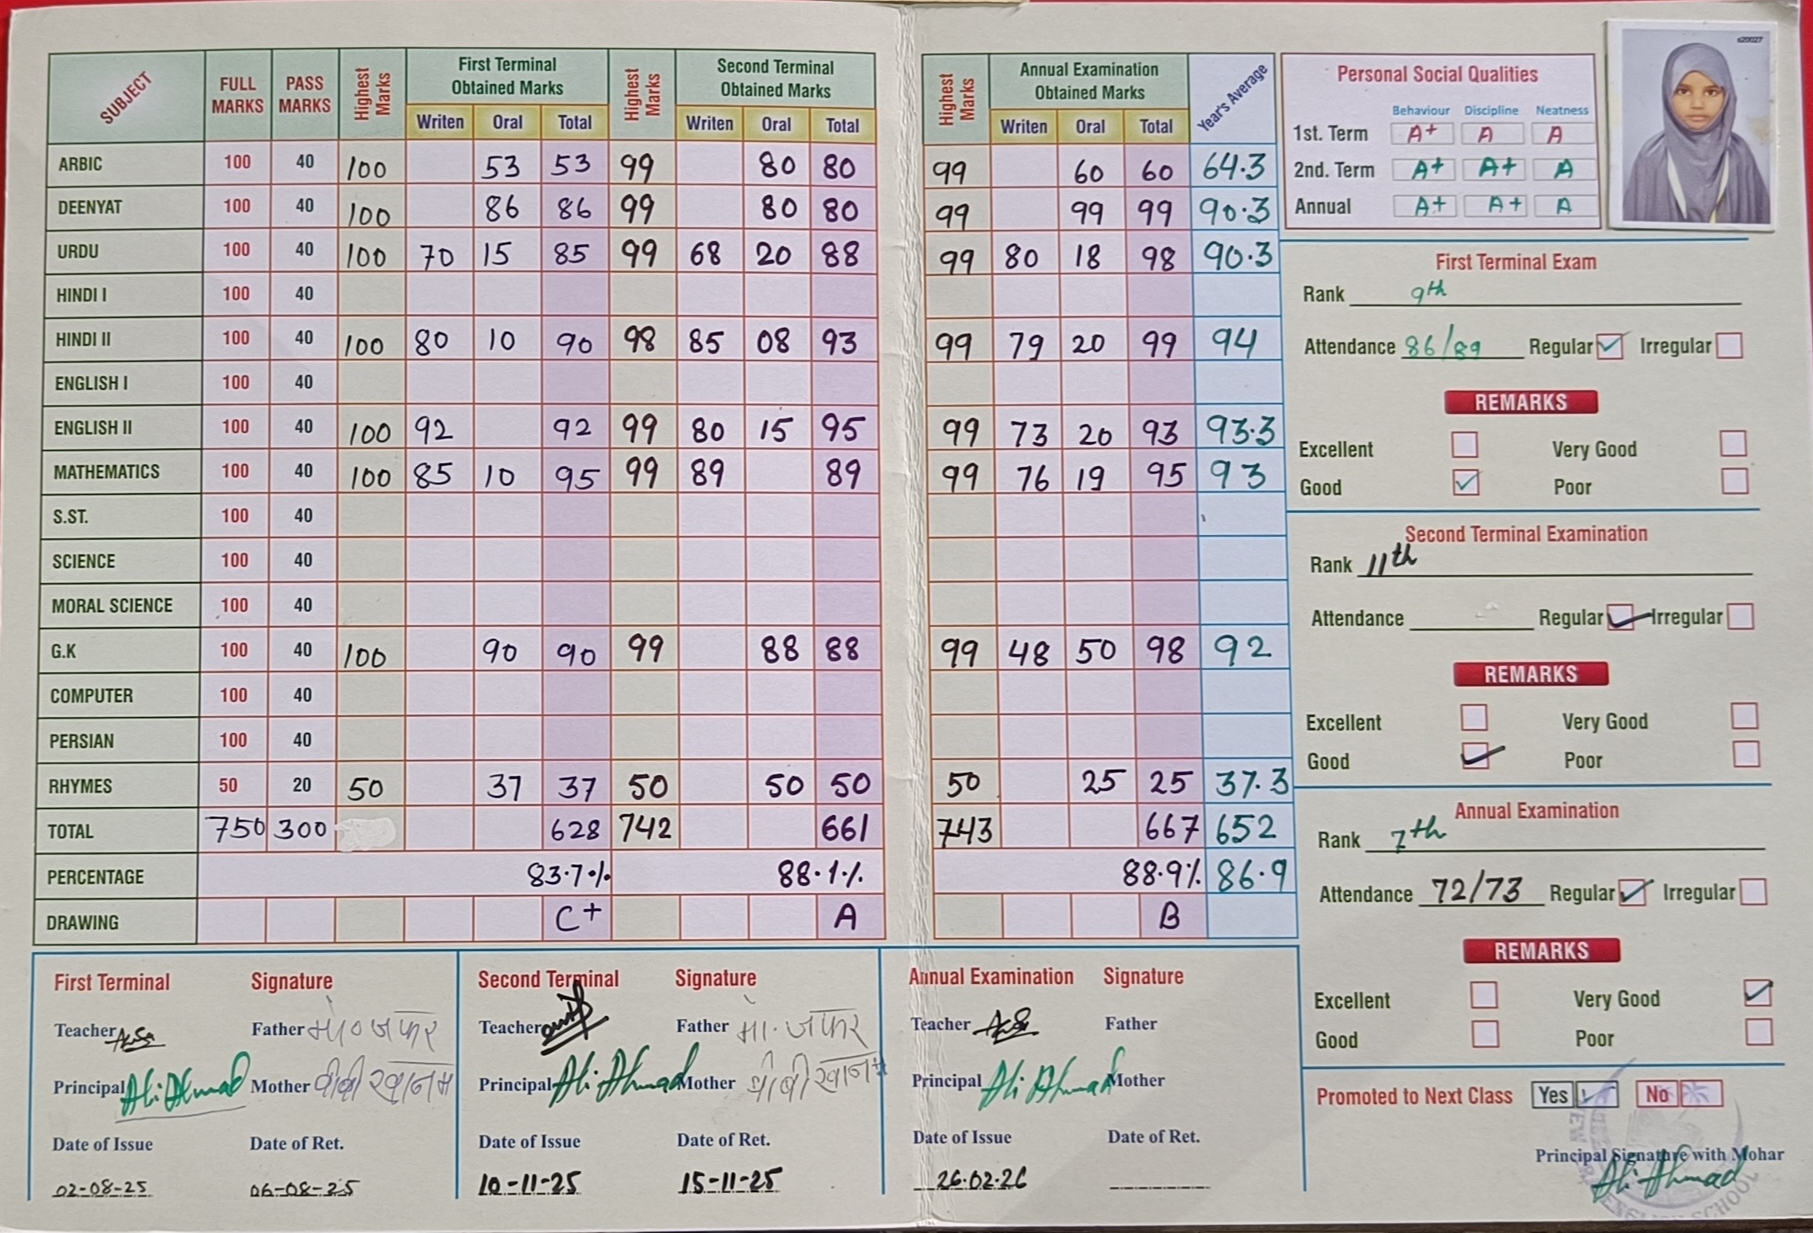 SUBJECT FULL MARKS PASS MARKS Highest Marks First Terminal Obtained Marks Highest Marks Second Terminal Obtained Marks Highest Marks Annual Examination Obtained Marks Year's Average
Writen Oral Total Writen Oral Total Writen Oral Total
ARBIC 100 40 100 53 53 99 80 80 99 60 60 64.3
DEENYAT 100 40 100 86 86 99 80 80 99 99 99 90.3
URDU 100 40 100 70 15 85 99 68 20 88 99 80 18 98 90.3
HINDI I 100 40
HINDI II 100 40 100 80 10 90 98 85 08 93 99 79 20 99 94
ENGLISH I 100 40
ENGLISH II 100 40 100 92 92 99 80 15 95 99 73 20 93 93.3
MATHEMATICS 100 40 100 85 10 95 99 89 89 99 76 19 95 93
S.ST. 100 40
SCIENCE 100 40
MORAL SCIENCE 100 40
G.K 100 40 100 90 90 99 88 88 99 48 50 98 92
COMPUTER 100 40
PERSIAN 100 40
RHYMES 50 20 50 37 37 50 50 50 50 25 25 37.3
TOTAL 750 300 628 742 661 743 667 652
PERCENTAGE 83.7% 88.1% 88.9% 86.9
DRAWING C+ A B
First Terminal Signature
Teacher Father मो० जफर
Principal Ali Ahmad Mother बीबी खानम
Date of Issue Date of Ret.
02-08-25 06-08-25
Second Terminal Signature
Teacher Father मो. जफर
Principal Ali Ahmad Mother बीबी खानम
Date of Issue Date of Ret.
10-11-25 15-11-25
Annual Examination Signature
Teacher Father
Principal Ali Ahmad Mother
Date of Issue Date of Ret.
26.02.26
Personal Social Qualities
Behaviour Discipline Neatness
1st. Term A+ A A
2nd. Term A+ A+ A
Annual A+ A+ A
First Terminal Exam
Rank 9th
Attendance 86/89 Regular Irregular
REMARKS
Excellent Very Good
Good Poor
Second Terminal Examination
Rank 11th
Attendance Regular Irregular
REMARKS
Excellent Very Good
Good Poor
Annual Examination
Rank 7th
Attendance 72/73 Regular Irregular
REMARKS
Excellent Very Good
Good Poor
Promoted to Next Class Yes No
Principal Signature with Mohar
Ali Ahmad
ENGLISH SCHOOL